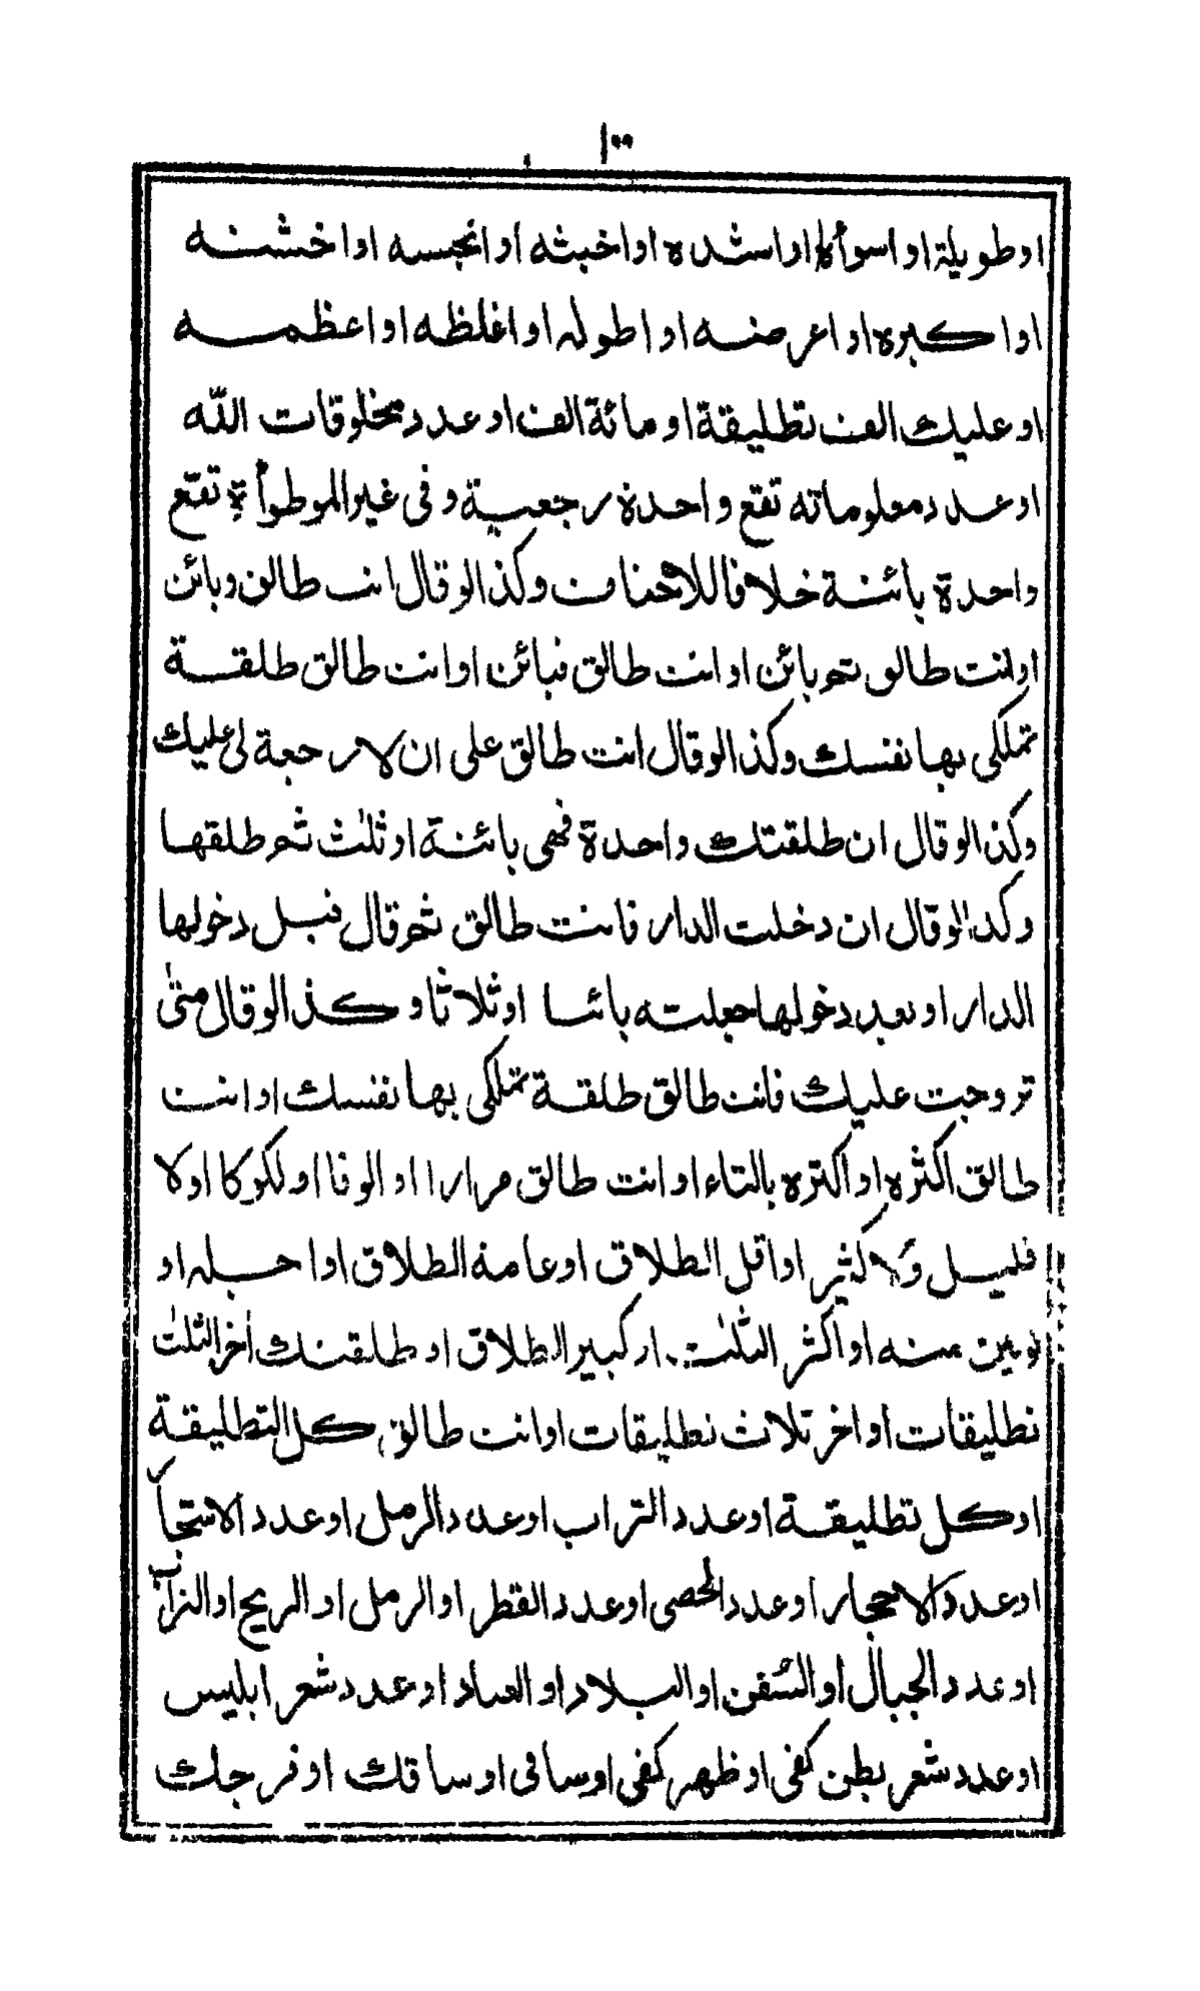 ١٠٠
او طويلة او اسوأه او اشده او اخبثه او انجسه او اخشنه
او اكبره او اعرضه او اطوله او اغلظه او اعظمه
او عليك الف تطليقة او مائة الف او عدد مخلوقات الله
او عدد معلوماته تقع واحدة رجعية وفى غير الموطوأة تقع
واحدة بائنة خلافا للاحناف وكذا لو قال انت طالق وبائن
او انت طالق ثم بائن او انت طالق فبائن او انت طالق طلقة
تملكى بها نفسك وكذا لو قال انت طالق على ان لا رجعة لى عليك
وكذا لو قال ان طلقتك واحدة فهى بائنة او ثلٰث ثم طلقها
وكذا لو قال ان دخلت الدار فانت طالق ثم قال قبل دخولها
الدار او بعد دخولها جعلته بائنا او ثلاثا وكذا لو قال متىٰ
تزوجت عليك فانت طالق طلقة تملكى بها نفسك او انت
طالق اكثره او اكتره بالتاء او انت طالق مرارا او الوفا او لكوكا او لا
قليل ولا كثير او اقل الطلاق او عامة الطلاق او اجله او
نوعين منه او اكثر الثلٰث او كبير الطلاق او طلقتك اٰخر الثلٰث
تطليقات او اخر ثلاث تطليقات او انت طالق كل التطليقة
او كل تطليقة او عدد التراب او عدد الرمل او عدد الاشجار
او عدد الاحجار او عدد الحصى او عدد القطر او الرمل او الريح او التراب
او عدد الجبال او السفن او البلاد او العباد او عدد شعر ابليس
او عدد شعر بطن كفى او ظهر كفى او ساقى او ساقك او فرجك